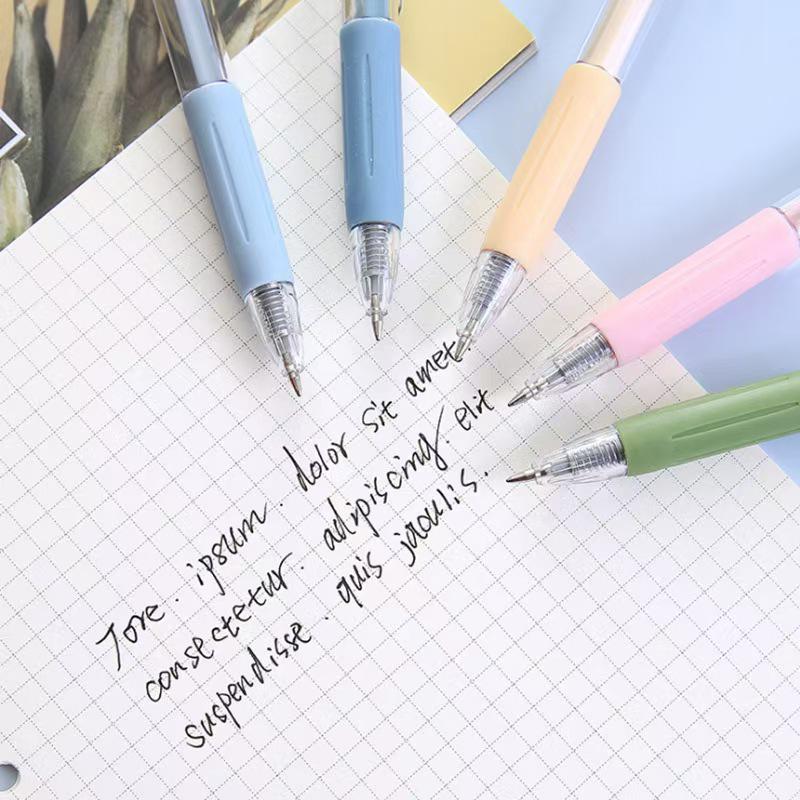 Tore. ipsum. dolor sit amet.
consectetur. adipiscing. elit
suspendisse. quis jaoulis.